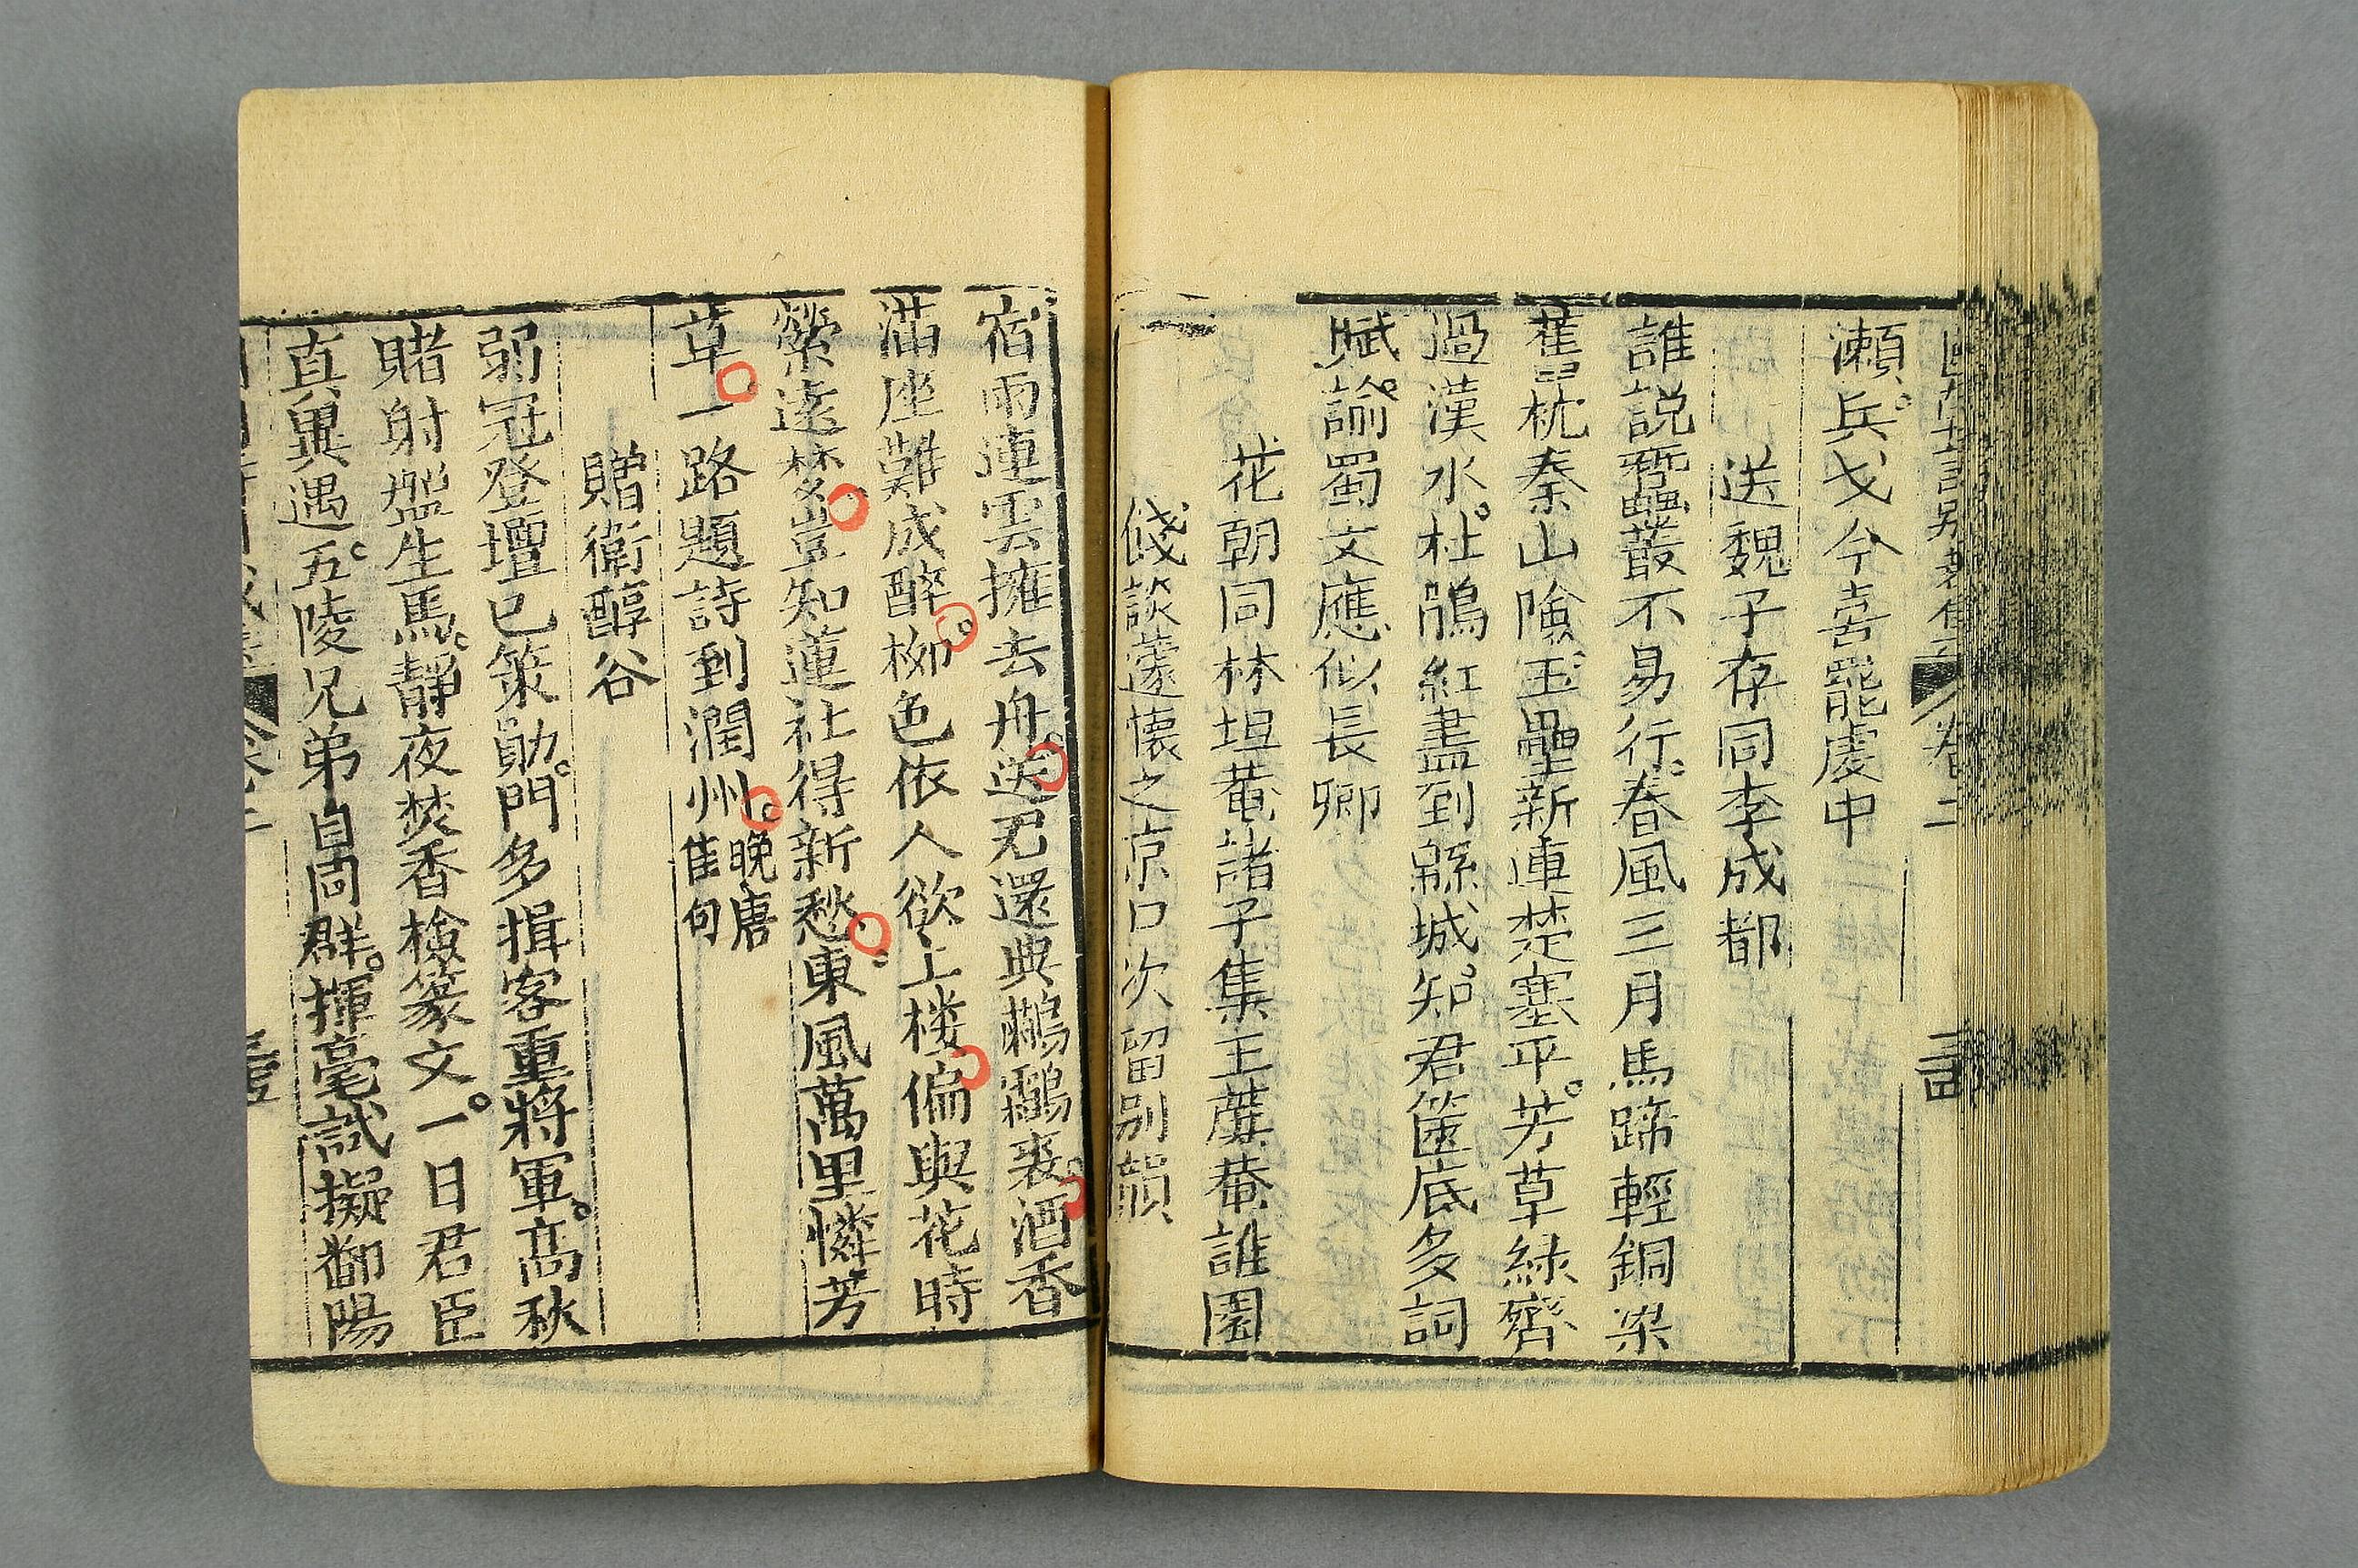 瀬兵戈今喜罷虔中
送魏子存同李成都
誰説蠶叢不易行。春風三月馬蹄輕銅梁
舊枕秦山險玉壘新連楚塞平。芳草緑齊
過漢水。杜鵑紅盡到緜城。知君篋底多詞
賦。諭蜀文應似長卿
花朝同林坦菴諸子集王蓼菴誰園
餞談䆳懷之京口次留别韻
宿雨連雲擁去舟。送君還典鷫鸘裘。酒香
滿座難成醉。栁色依人欲上楼偏與花時
縈遠梦豈知蓮社得新愁。東風萬里憐芳
草一路題詩到潤州。晚唐佳句
贈衛醇谷
弱冠登壇已策勛。門多揖客重將軍。高秋
賭射盤生馬。靜夜焚香檢篆文。一日君臣
真異遇。五陵兄弟自同群。揮毫試擬鄱陽